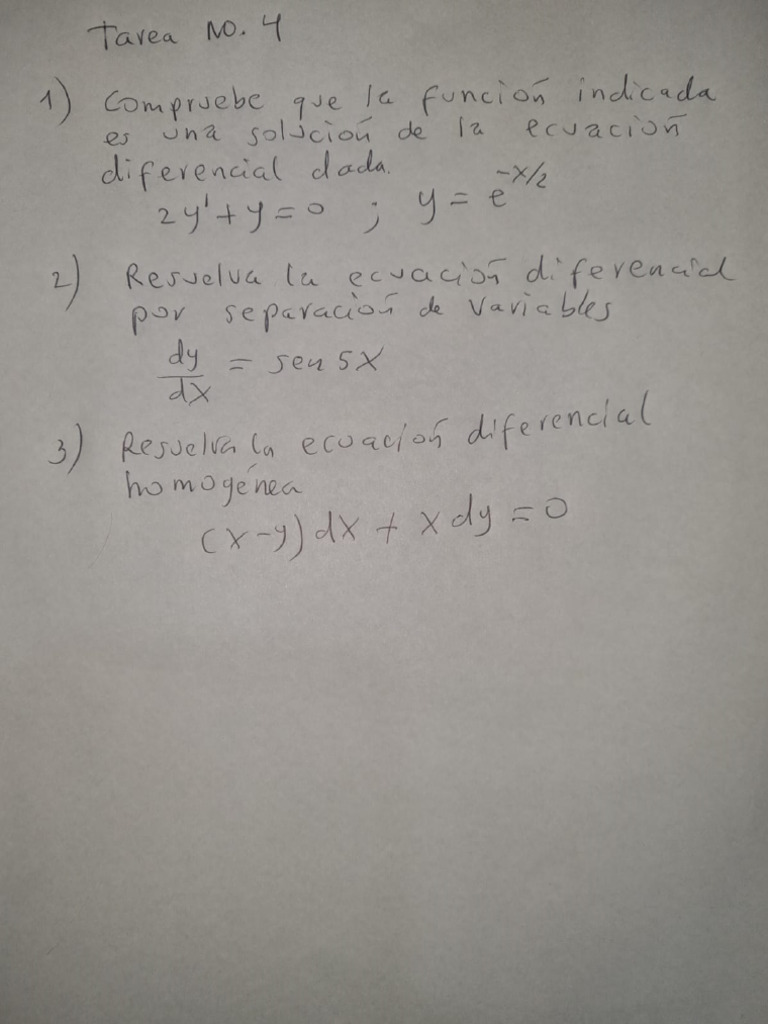 Tarea No. 4
1) Compruebe que la función indicada
es una solución de la ecuación
diferencial dada.
2y' + y = 0 ; y = e^{-x/2}
2) Resuelva la ecuación diferencial
por separación de variables
dy/dx = sen 5x
3) Resuelva la ecuación diferencial
homogénea
(x-y)dx + x dy = 0